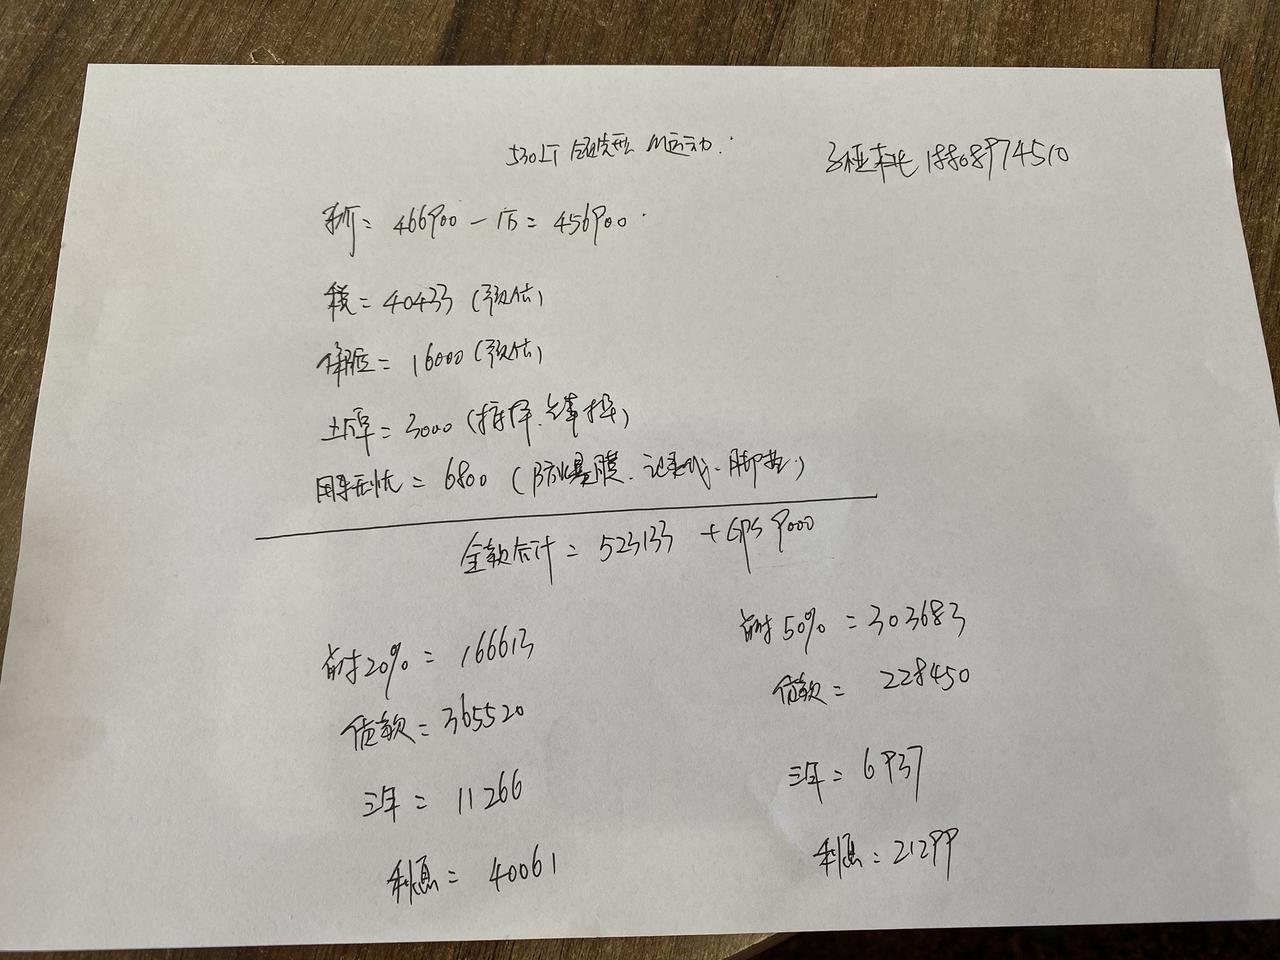 530Li 领先型 M运动.
18808974510
车价= 466900 - 1万 = 456900
税= 40433 (预估)
保险= 16000 (预估)
上户= 3000
用车无忧 = 6800 (防爆膜、记录仪、脚垫)
全款合计 = 523133 + GPS 9000
首付20% = 166613
贷款= 365520
三年 = 11266
利息 = 40061
首付 50% = 303683
贷款= 228450
三年= 6937
利息 = 21299